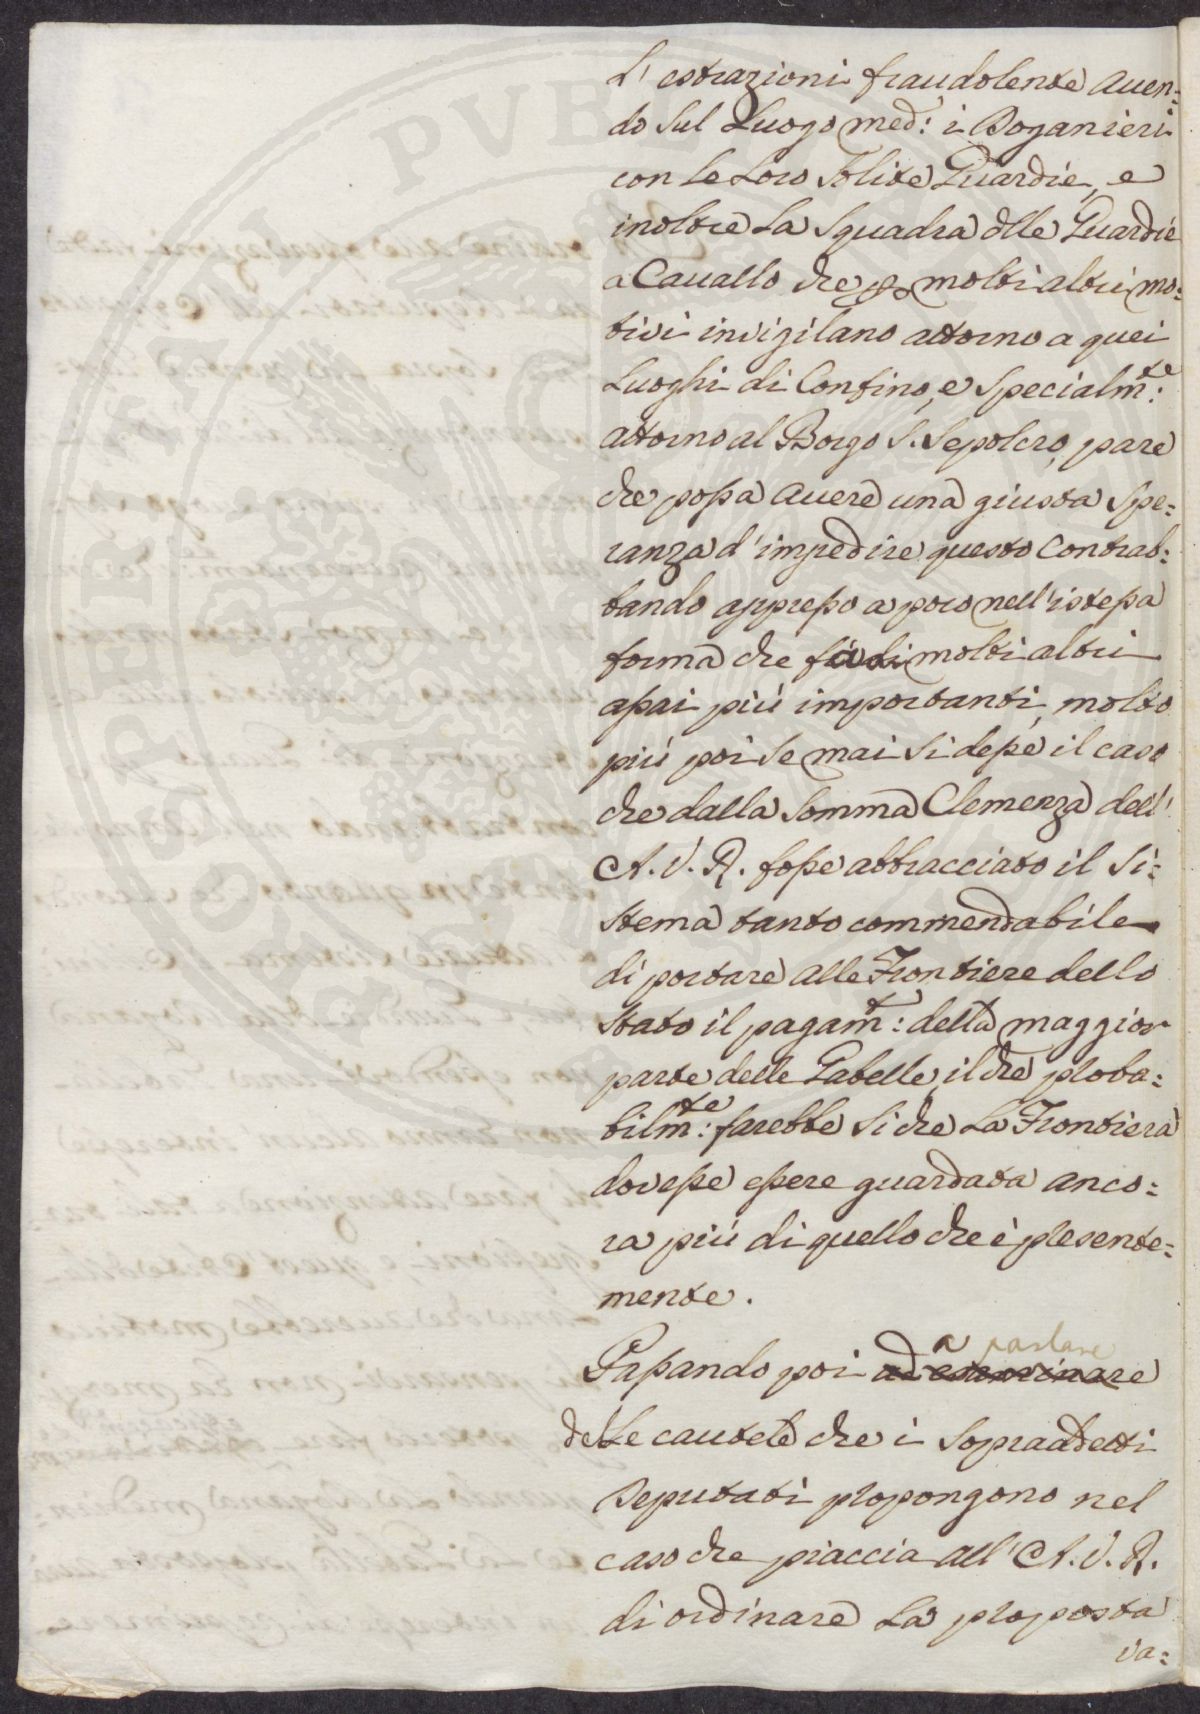 L'estrazioni fraudolente auen=
do sul Luogo med: i Doganieri
con le loro solite Guardie, e
inoltre la Squadra dlle Guardie
a Cauallo che p molti altri mo=
tivi invigilano attorno a quei
Luoghi di Confino, e specialmte:
attorno al Borgo S. Sepolcro, pare
che possa auere una giusta spe=
ranza d'impedire questo Contrab=
bando appresso a poco nell'istessa
forma che fà di molti altri
assai più importanti, molto
più poi se mai si desse il caso
che dalla somma Clemenza dell'
A. V. R. fosse abbracciato il Si=
stema tanto commendabile
di portare alle Frontiere dello
Stato il pagamt: della maggior
parte delle Gabelle, il che proba=
bilmte: farebbe si che la Frontiera
dovesse essere guardata anco=
ra più di quello che è presente=
mente.
a parlare
Passando poi ad esaminare
delle cautele che i sopraddetti
Deputati propongono nel
caso che piaccia all'A. V. R.
di ordinare la proposta
va=